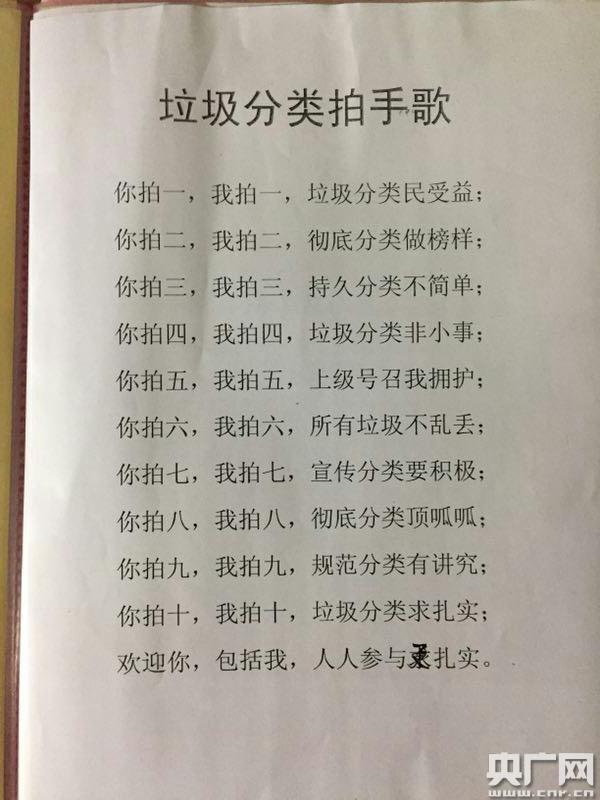 垃圾分类拍手歌
你拍一，我拍一，垃圾分类民受益；
你拍二，我拍二，彻底分类做榜样；
你拍三，我拍三，持久分类不简单；
你拍四，我拍四，垃圾分类非小事；
你拍五，我拍五，上级号召我拥护；
你拍六，我拍六，所有垃圾不乱丢；
你拍七，我拍七，宣传分类要积极；
你拍八，我拍八，彻底分类顶呱呱；
你拍九，我拍九，规范分类有讲究；
你拍十，我拍十，垃圾分类求扎实；
欢迎你，包括我，人人参与扎实。
央广网
www.cnr.cn